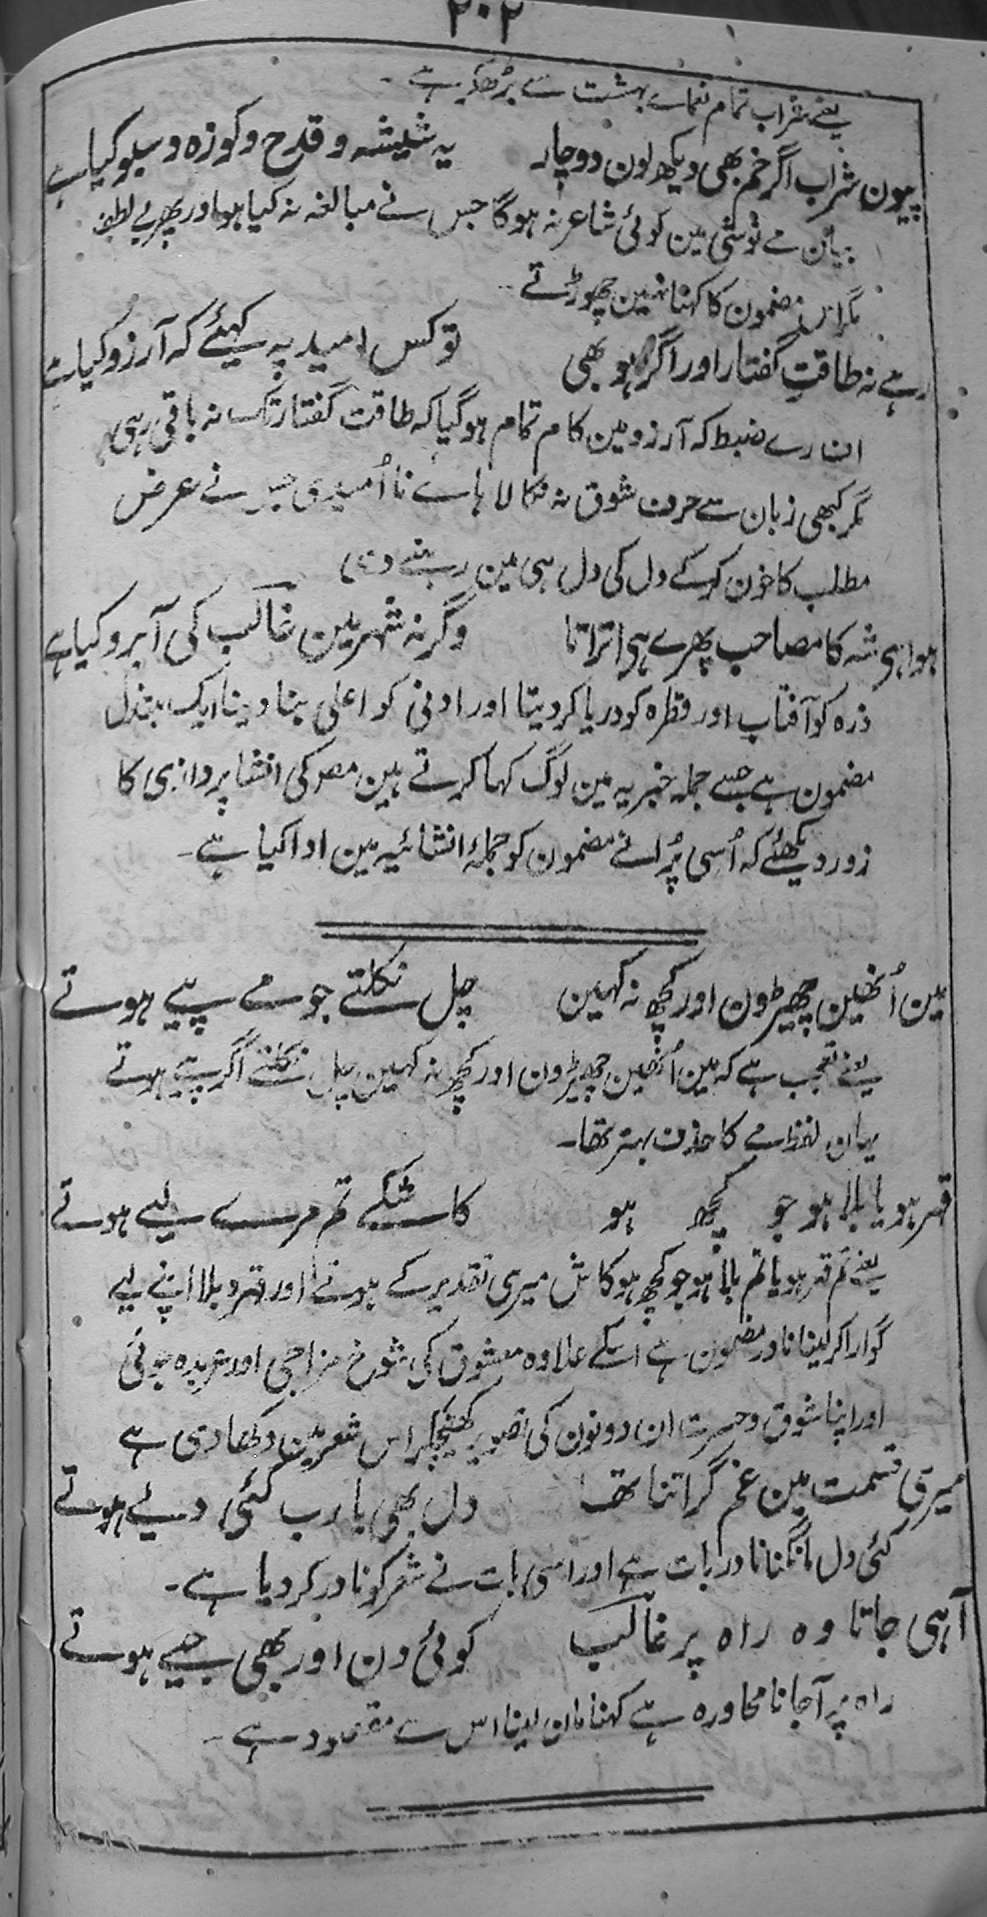 ۲۰۲
یعنے شراب تمام نعماے بہشت سے بڑھکر ہے ۔
پیون شراب اگر خم بھی دیکھ لون دوچار یہ شیشہ و قدح و کوزہ و سبو کیا ہے
بیان مے نوشی مین کوئی شاعر نہ ہوگا جس نے مبالغہ نہ کیا ہو اور پھر بے لطف
مگر اس مضمون کا کہنا نہین چھوڑتے ۔
رہے نہ طاقتِ گفتار اور اگر ہو بھی تو کس امید پہ کہئے کہ آرزو کیا ہے
اللہ رے ضبط کہ آرزو مین کام تمام ہوگیا کہ طاقت گفتار تک نہ باقی رہی
مگر کبھی زبان سے حرف شوق نہ نکالا ہاے نا اُمیدی جس نے عرض
مطلب کا خون کرکے دل کی دل ہی مین رہنے دی
ہوا ہی شہ کا مصاحب پھرے ہی اتراتا وگرنہ شہر مین غالب کی آبرو کیا ہے
ذرہ کو آفتاب اور قطرہ کو دریا کر دیتا اور ادنیٰ کو اعلی بنا دینا ایک مبتذل
مضمون ہے جسے جملہ خبریہ مین لوگ کہا کرتے ہین مصر کی انشا پردازی کا
زور دیکھئے کہ اُسی پُرانے مضمون کو جملۂ انشائیہ مین ادا کیا ہے ۔
مین اُنھین چھیڑون اور کچھ نہ کہین چل نکلتے جو مے پیے ہوتے
یعنے تعجب ہے کہ مین اُنھین چھیڑون اور کچھ نہ کہین چل نکلتے اگر پیے ہوتے
یہان لفظ مے کا حذف بہتر تھا ۔
قہر ہو یا بلا ہو جو کچھ ہو کاشکے تم مرے لیے ہوتے
یعنے تم قہر ہو یا تم بلا ہو جو کچھ ہو کاش میری تقدیر کے ہوتے اور قہر و بلا اپنے لیے
گوارا کر لینا نادر مضمون ہے اسکے علاوہ معشوق کی شوخ مزاجی اور عربدہ جوئی
اور اپنا شوق و حسرت ان دونون کی تصویر کھینچکر اس شعر مین دکھا دی ہے
میری قسمت مین غم گر اتنا تھا دل بھی یارب کئی دیے ہوتے
کئی دل مانگنا نادر بات ہے اور اسی بات نے شعر کو نادر کر دیا ہے ۔
آ ہی جاتا وہ راہ پر غالب کوئی دن اور بھی جیے ہوتے
راہ پر آ جانا محاورہ ہے کہنا مان لینا اس سے مقصود ہے ۔